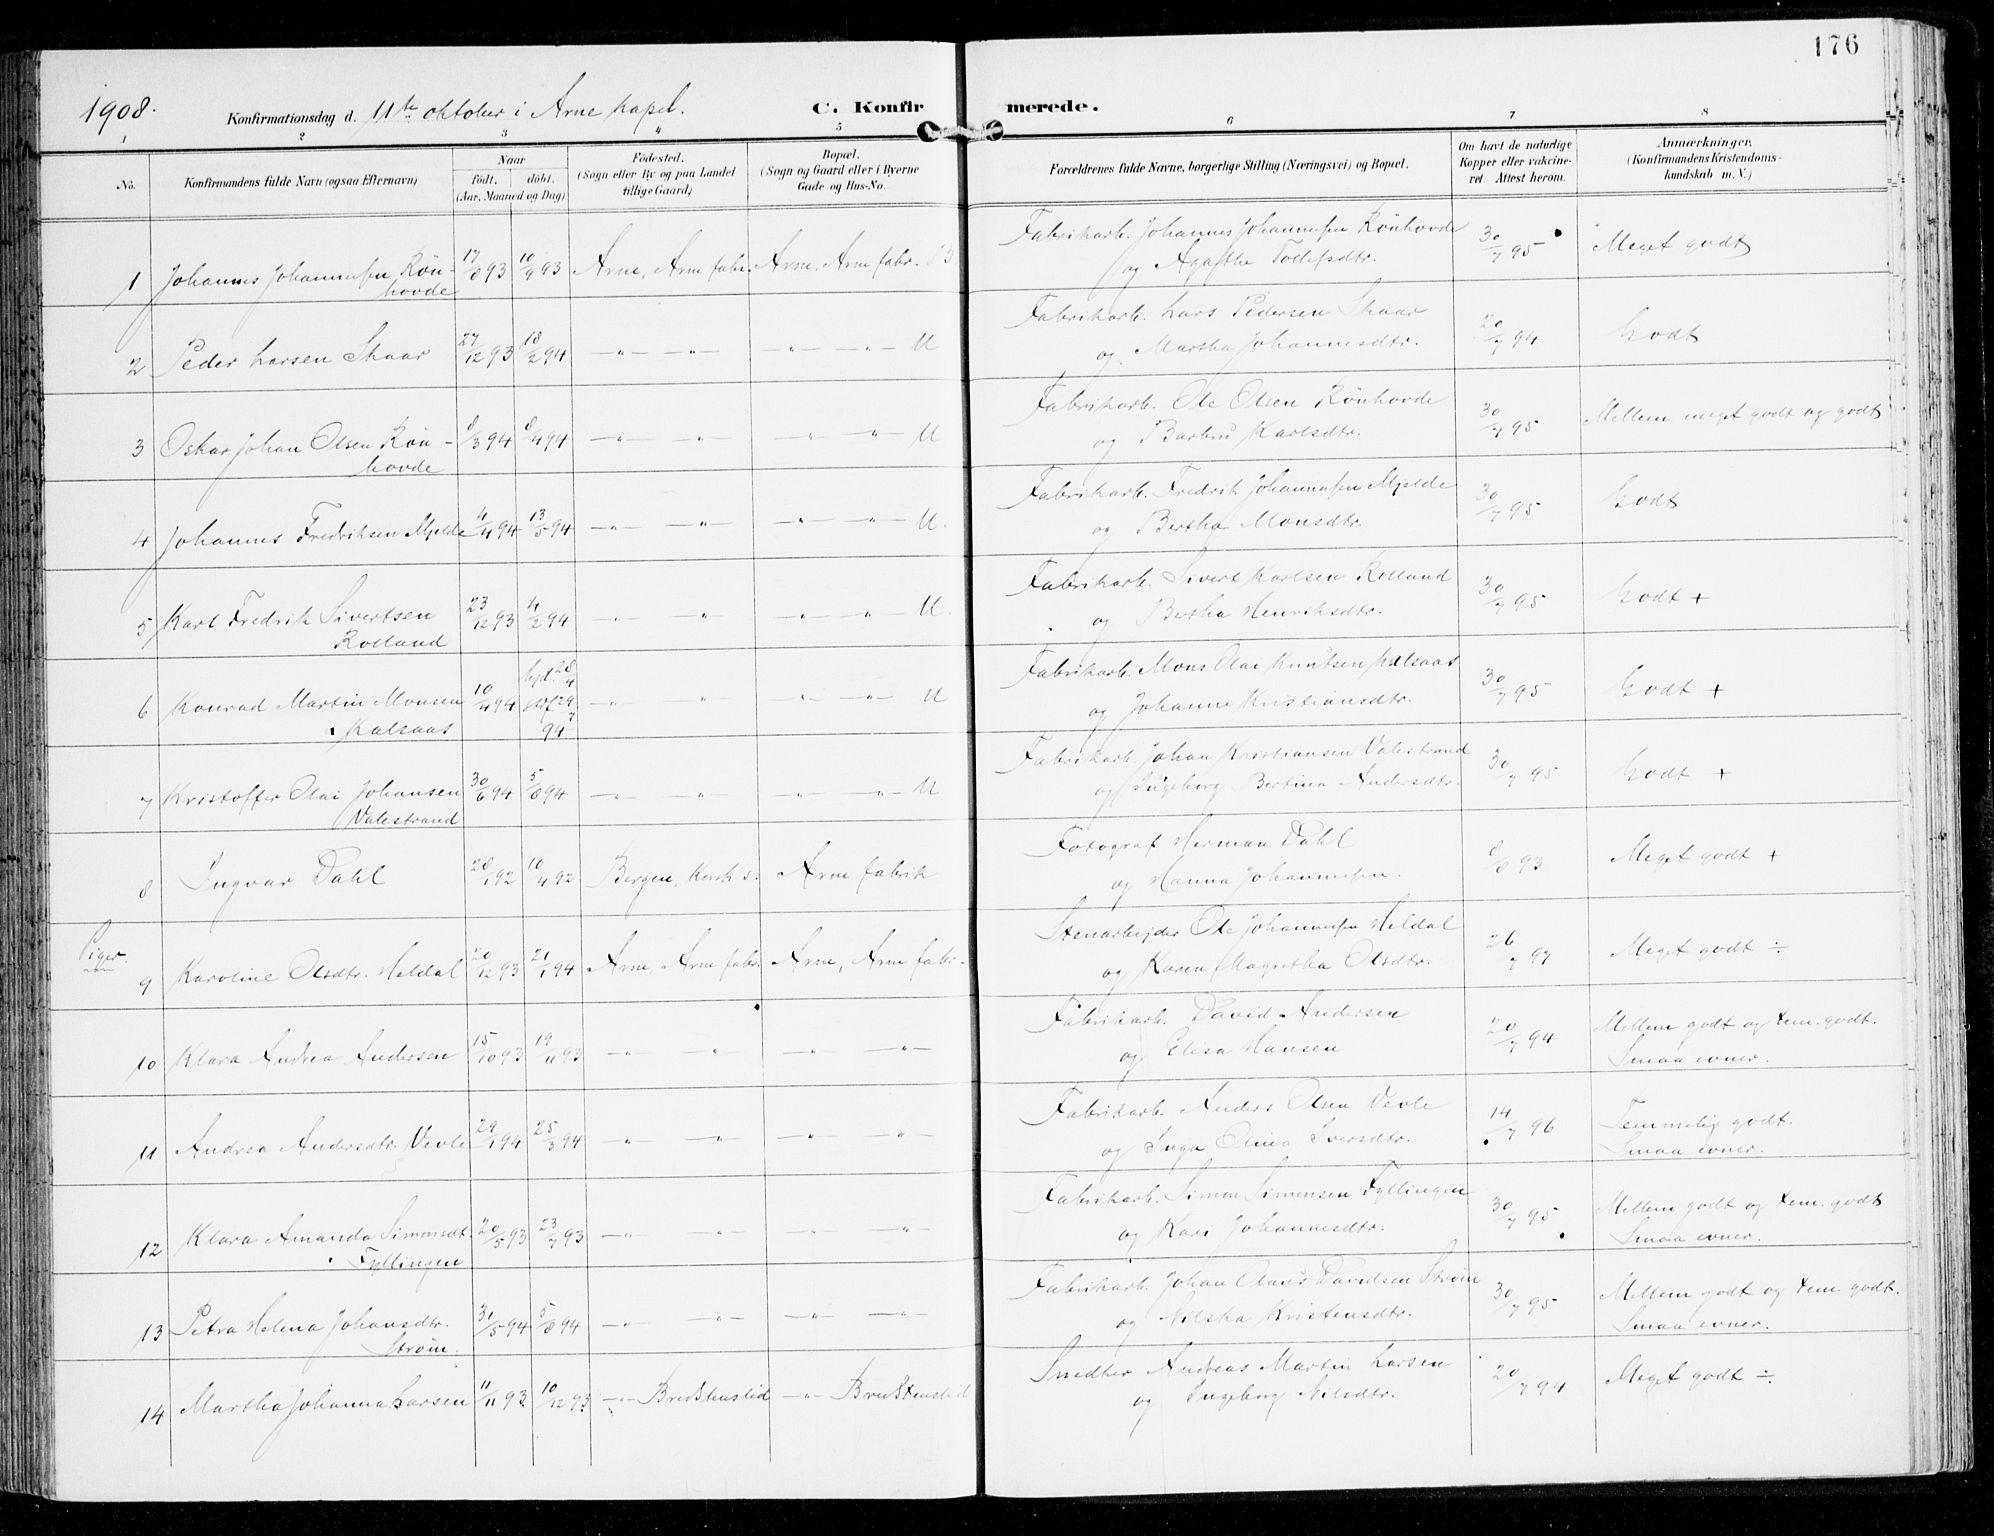 176
1908. Konfirmationsdag d. 11te oktober i Arne kapel. C. Konfirmerede.
1 2 3 4 5 6 7 8
No. Konfirmandens fulde Navn (ogsaa Efternavn) Naar født, døbt. (Aar, Maaned og Dag) Fødested. (Sogn eller By og paa Landet tillige Gaard) Bopæl. (Sogn og Gaard eller i Byerne Gade og Hus-No. Forældrenes fulde Navne, borgerlige Stilling (Næringsvei) og Bopæl. Om havt de naturlige Kopper eller vakcineret. Attest herom. Anmærkninger. (Konfirmandens Kristendomskundskab m. V.)
1 Johannes Johannessen Rönhovde 17/8 93 10/9 93 Arne, Arne fabr. Arne, Arne fabr. B Fabrikarb. Johannes Johannessen Rönhovde og Agathe Tollefsdtr. 30/7 95 Meget godt
2 Peder Larsen Skaar 27/12 93 18/2 94 —„— —„— —„— —„— U Fabrikarb. Lars Pedersen Skaar og Martha Johannesdtr. 20/7 94 Godt
3 Oskar Johan Olsen Rönhovde 8/3 94 8/4 94 —„— „ „ —„— U Fabrikarb. Ole Olsen Rönhovde og Barbru Karlsdtr. 30/7 95 Mellem meget godt og godt
4 Johannes Fredriksen Mjelde 4/4 94 13/5 94 —„— —„— —„— —„— U. Fabrikarb. Fredrik Johannessen Mjelde og Bertha Monsdtr. 30/7 95 Godt
5 Karl Fredrik Sivertsen Rolland 23/12 93 4/2 94 —„— „ —„— „ U. Fabrikarb. Sivert Karlsen Rolland og Bertha Henriksdtr. 30/7 95 Godt +
6 Konrad Martin Monsen Kalsaas 10/4 94 hjd. 28/4 29/7 94 —„— „ —„— —„— U Fabrikarb. Mons Olai Knutsen Kalsaas og Johanne Kristiansdtr. 30/7 95 Godt +
7 Kristoffer Olai Johansen Valestrand 30/6 94 5/8 94 —„— —„— —„— —„— U Fabrikarb. Johan Kristiansen Valestrand og Ingeborg Bertina Andersdtr. 30/7 95 Godt +
8 Ingvar Dahl 28/1 92 10/4 92 Bergen, Korsk. s. Arne fabrik Fotograf Herman Dahl og Hanna Johannessen. 8/8 93 Meget godt +
Piger.
9 Karoline Olsdtr. Heldal 20/12 93 21/1 94 Arne, Arne fabr. Arne, Arne fabr. Stenarbejder Ole Johannessen Heldal og Karen Magretha Olsdtr. 26/7 97 Meget godt ÷
10 Klara Andrea Andersen 15/10 93 19/11 93 —„— „ „ —„— Fabrikarb. David Andersen og Elisa Hansen 20/7 94 Mellem godt og tem. godt. Smaa evner.
11 Andrea Andersdtr. Vevle 29/1 94 25/3 94 —„— „ „ —„— Fabrikarb. Anders Olsen Vevle og Inga Olina Iversdtr. 14/7 96 Temmelig godt. Smaa evner.
12 Klara Amanda Simonsdt. Fyllingen 20/5 93 23/7 93 —„— „ „ „ Fabrikarb. Simon Simonsen Fyllingen og Kari Johannesdtr. 30/7 95 Mellem godt og tem. godt Smaa evner.
13 Petra Helena Johansdtr. Ström. 31/5 94 5/8 94 —„— —„— —„— —„— Fabrikarb. Johan Olaus Davidsen Ström og Nilska Kristensdtr. 30/7 95 Mellem godt og tem. godt. Smaa evner.
14 Martha Johanna Larsen 11/11 93 10/12 93 —„— Bredstensled —„— Bredstensled Andreas Martin Larsen og Ingeborg Nilsdtr. 20/7 94 Meget godt ÷